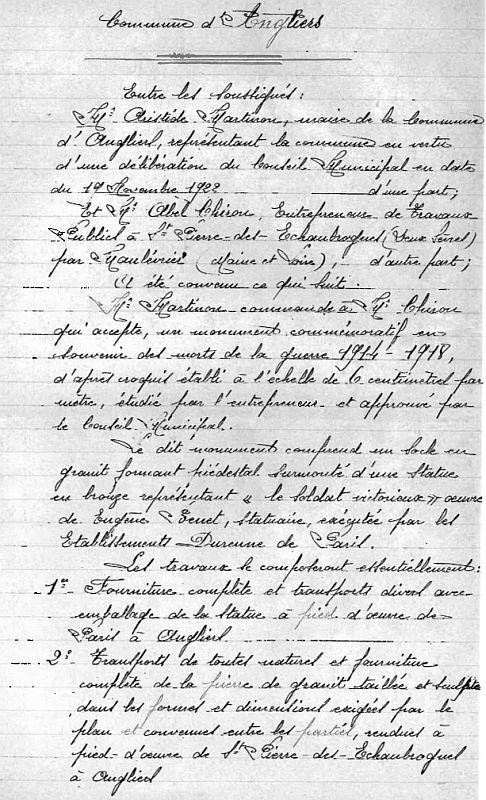 Commune d'Angliers
Entre les soussignés :
Mr Aristide Martinon, maire de la Commune
d'Angliers, représentant la commune en vertu
d'une délibération du Conseil Municipal en date
du 19 Novembre 1922 d'une part ;
Et Mr Abel Chiron, Entrepreneur de Travaux
Publics à St Pierre-des-Echaubrognes (Deux Sèvres)
par Maulévrier (Maine et Loire), d'autre part ;
Il a été convenu ce qui suit :
Mr Martinon commande à Mr Chiron
qui accepte, un monument commémoratif en
souvenir des morts de la guerre 1914-1918,
d'après croquis établi à l'échelle de 6 centimètres par
mètre, étudié par l'entrepreneur et approuvé par
le Conseil Municipal.
Le dit monument comprend un socle en
granit formant piédestal surmonté d'une statue
en bronze représentant « le soldat victorieux » œuvre
de Eugène Benet, statuaire, exécutée par les
Etablissements Durenne de Paris.
Les travaux se composeront essentiellement :
1er - Fourniture complète et transports divers avec
emballage de la statue à pied d'œuvre de
Paris à Angliers
2° - Transports de toutes natures et fourniture
complète de la pierre de granit taillée et sculptée
dans les formes et dimensions exigées par le
plan et convenues entre les parties, rendues à
pied-d'œuvre de St Pierre-des-Echaubrognes
à Angliers